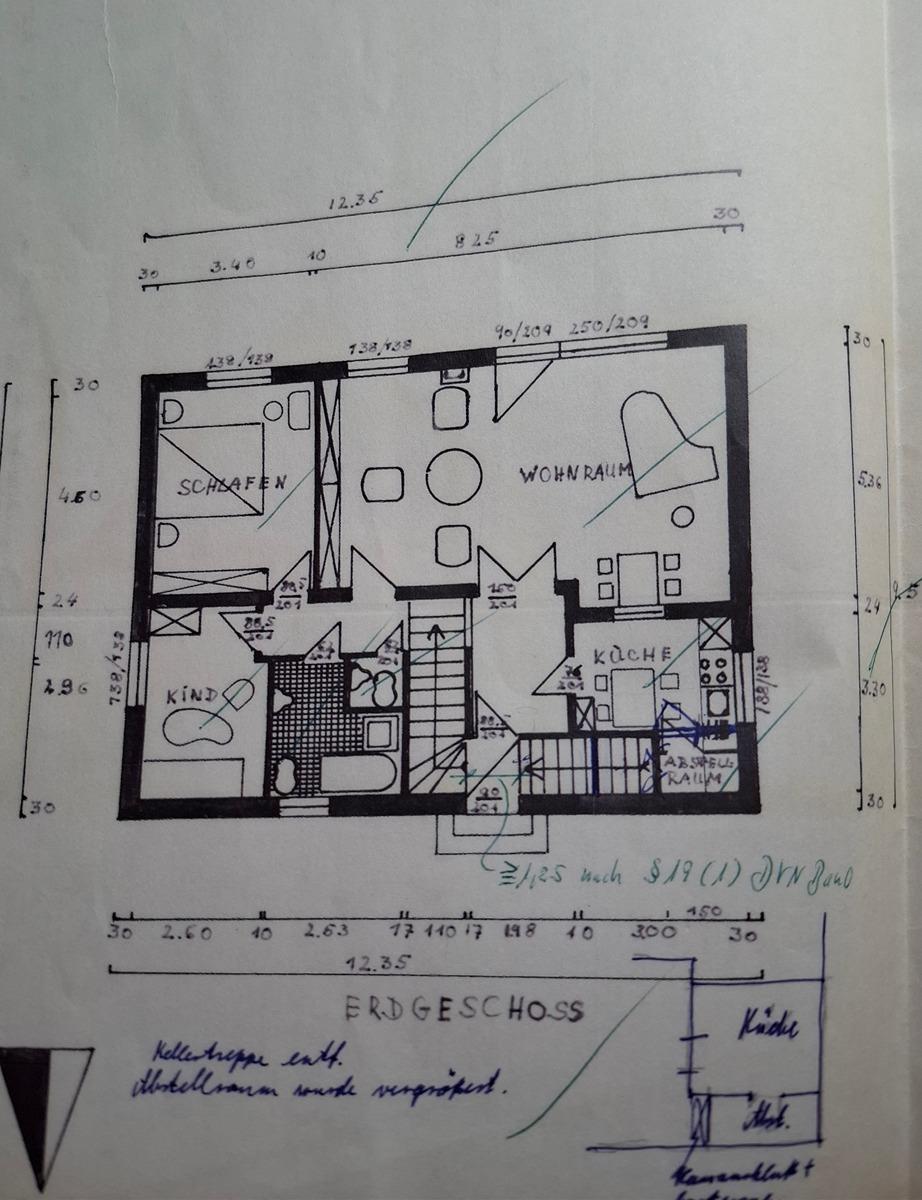 12.35
30
30 3.40 10 8.25
138/138 138/138 90/209 250/209
30
30
SCHLAFEN
WOHNRAUM
4.60
5.36
88,5
201
150
201
24
24
110
88,5
201
138/138
2.96
KIND
KÜCHE
76
201
138/138
3.30
88,5
201
ABSTELL
RAUM
90
201
30
30
≧1,25 nach §19 (1) DVNBauO
150
30 2.60 10 2.63 17 110 17 198 10 300 30
12.35
ERDGESCHOSS
Kellertreppe entf.
Abstellraum wurde vergrößert.
Küche
Abst.